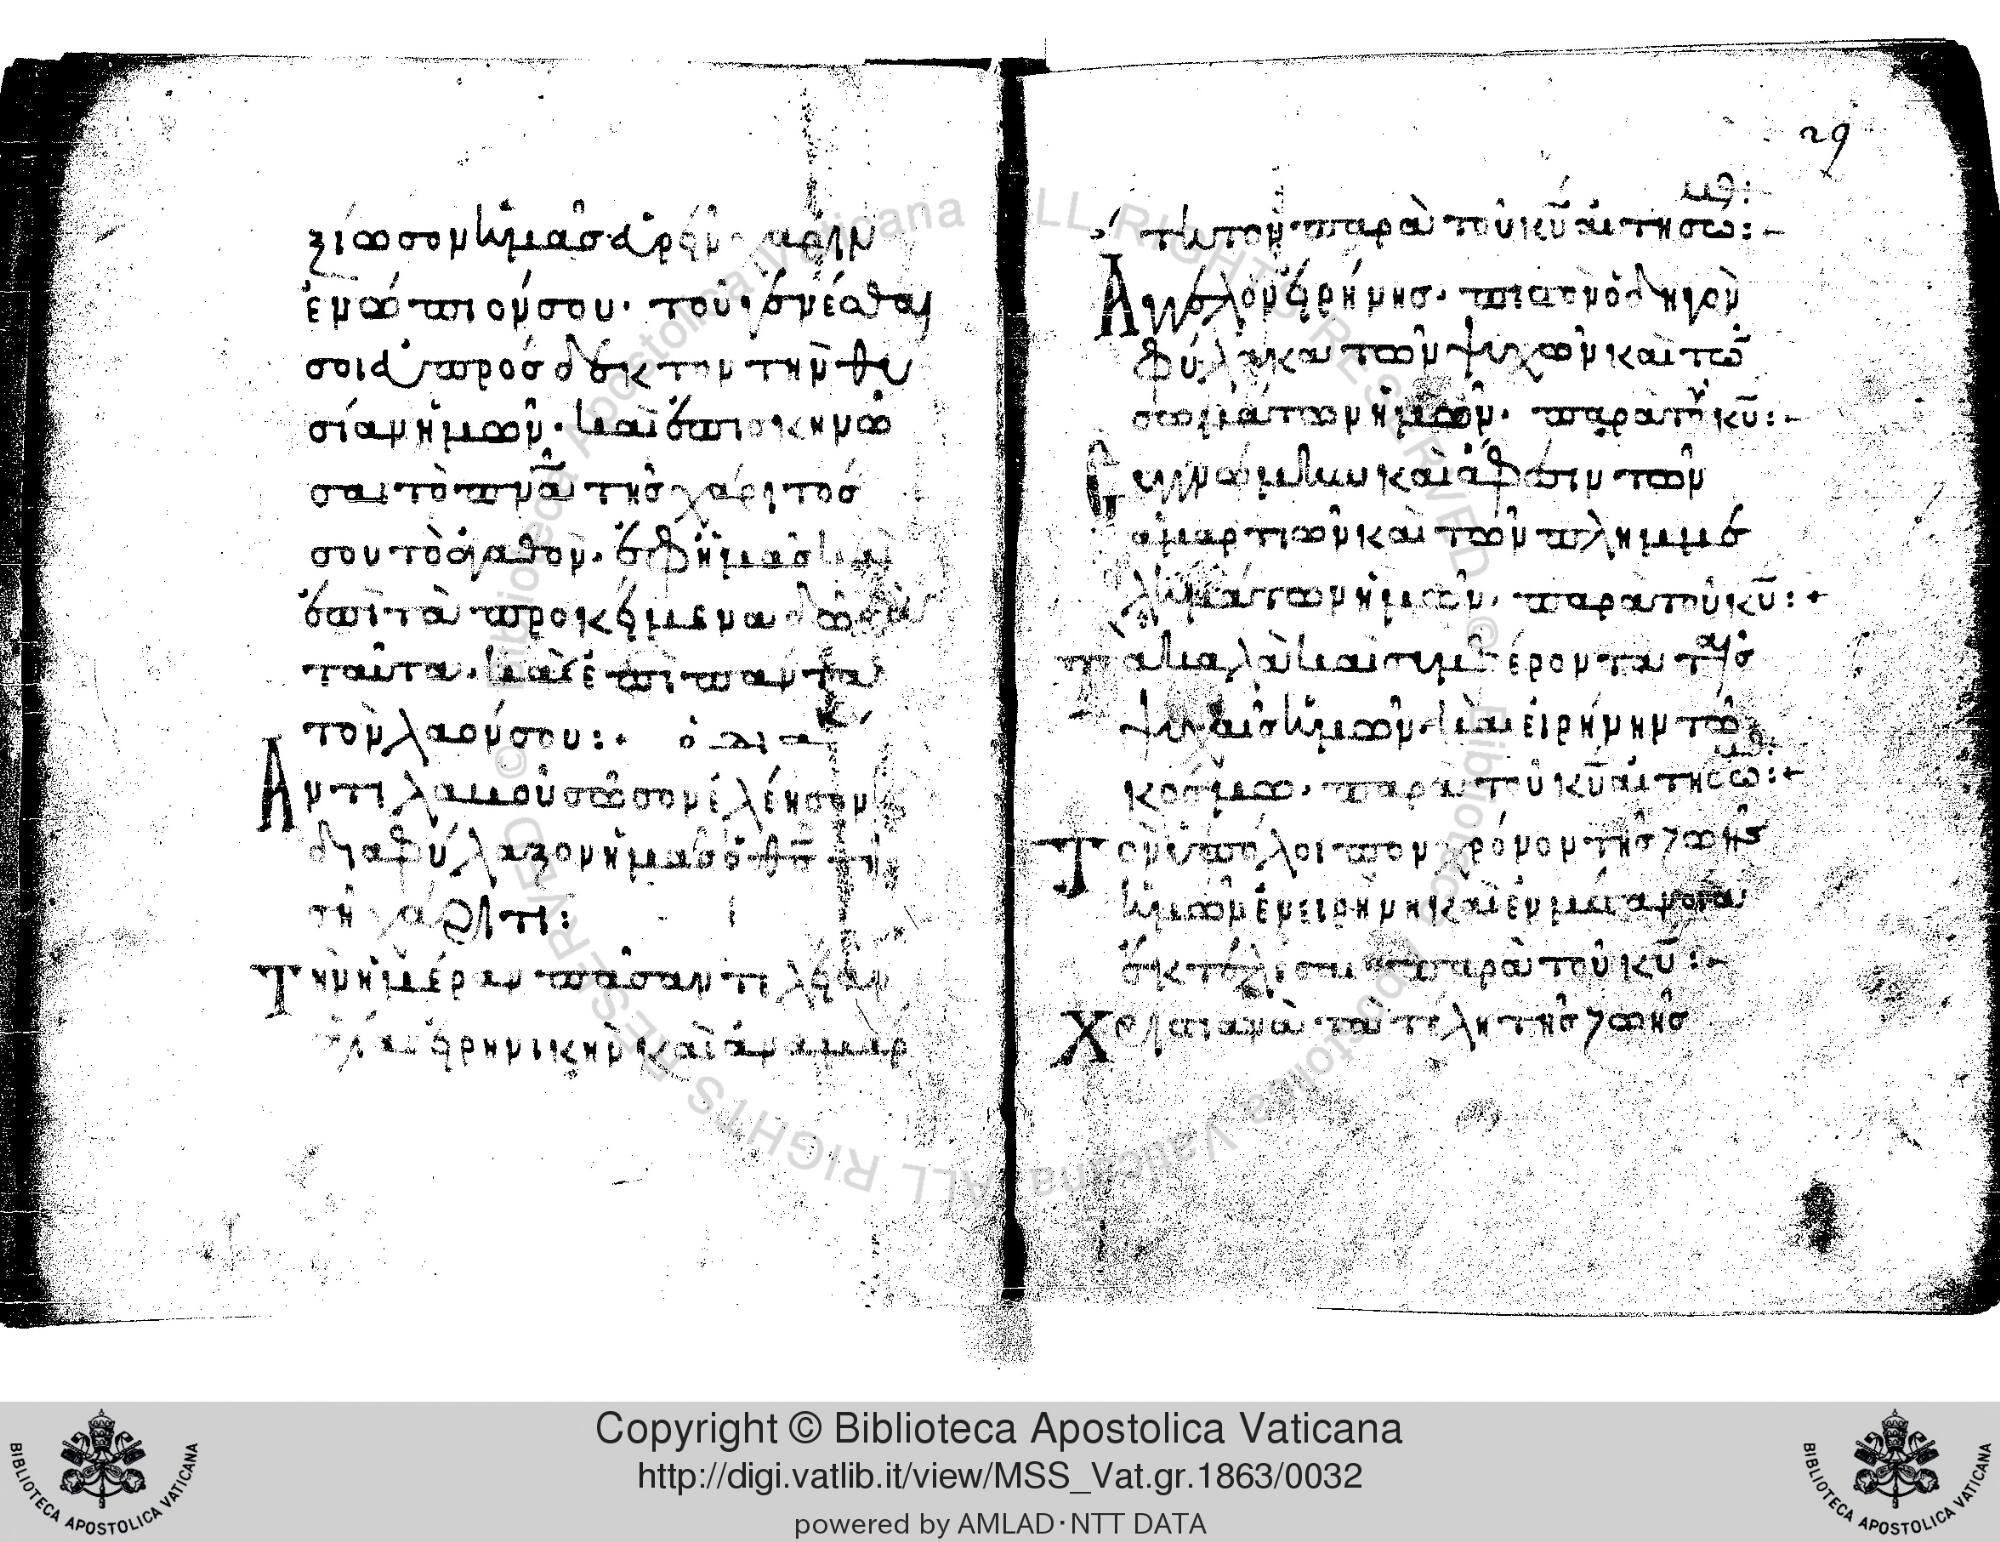 ξίωσον ἡμᾶς εὑρεῖν χάριν
ἐνώπιόν σου· τοῦ γενέσθαι
σοι εὐπρόσδεκτον τὴν θυ
σίαν ἡμῶν· καὶ ἐπισκηνῶ
σαι τὸ πνᾶ τῆς χάριτός
σου τὸ ἀγαθὸν· ἐφ ἡμᾶς καὶ
ἐπὶ τὰ προκείμενα δῶρα
ταῦτα· καὶ ἐπὶ πάντα
τὸν λαόν σου:· ὁ δια
Ἀντιλαβοῦ σῶσον ἐλέησον
διαφύλαξον ἡμᾶς ὁ θς τῆ
σῆ χάριτι:
Τὴν ἡμέραν πᾶσαν τιλείαν
ἁγίαν εἰρηνικὴν καὶ ἀναμάρ
29
τητον· παρὰ τοῦ κῦ αἰτησώμθ:-
Ἄγγελον εἰρήνης· πιστὸν ὁδηγὸν
φύλακα τῶν ψυχῶν καὶ τῶ
σωμάτων ἡμῶν· παρὰ τοῦ κῦ:-
Συγγνώμην καὶ ἄφεσιν τῶν
ἁμαρτιῶν καὶ τῶν πλημμε
λημάτων ἡμῶν· παρὰ τοῦ κῦ:+
Τὰ καλὰ καὶ συμφέροντα ταῖς
ψυχαῖς ἡμῶν· καὶ εἰρήνην τῶ
κόσμω· παρὰ τοῦ κῦ αἰτησώμθ:+
Τὸν ὑπόλοιπον χρόνον τῆς ζωῆς
ἡμῶν ἐν εἰρήνη καὶ ἐν μετανοία
ἐκτελέσαι παρὰ τοῦ κῦ:-
Χριστιανὰ· τὰ τέλη τῆς ζωῆς
Copyright © Biblioteca Apostolica Vaticana
http://digi.vatlib.it/view/MSS_Vat.gr.1863/0032
powered by AMLAD·NTT DATA
BIBLIOTECA APOSTOLICA VATICANA
BIBLIOTECA APOSTOLICA VATICANA